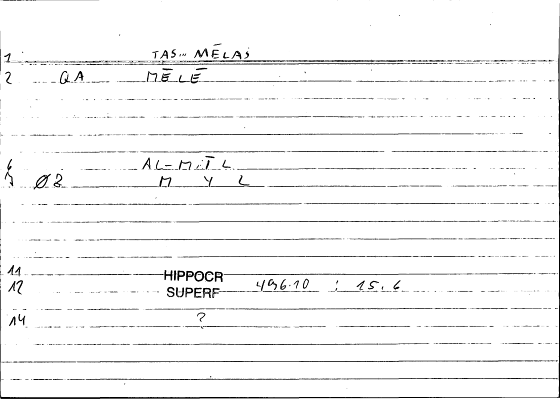 1 TAS... MĒLAS
2 QA MĒLĒ
6 AL-MĪL
7 Ø8 M Y L
11 HIPPOCR
12 SUPERF 496.10 : 15.6
14 ?